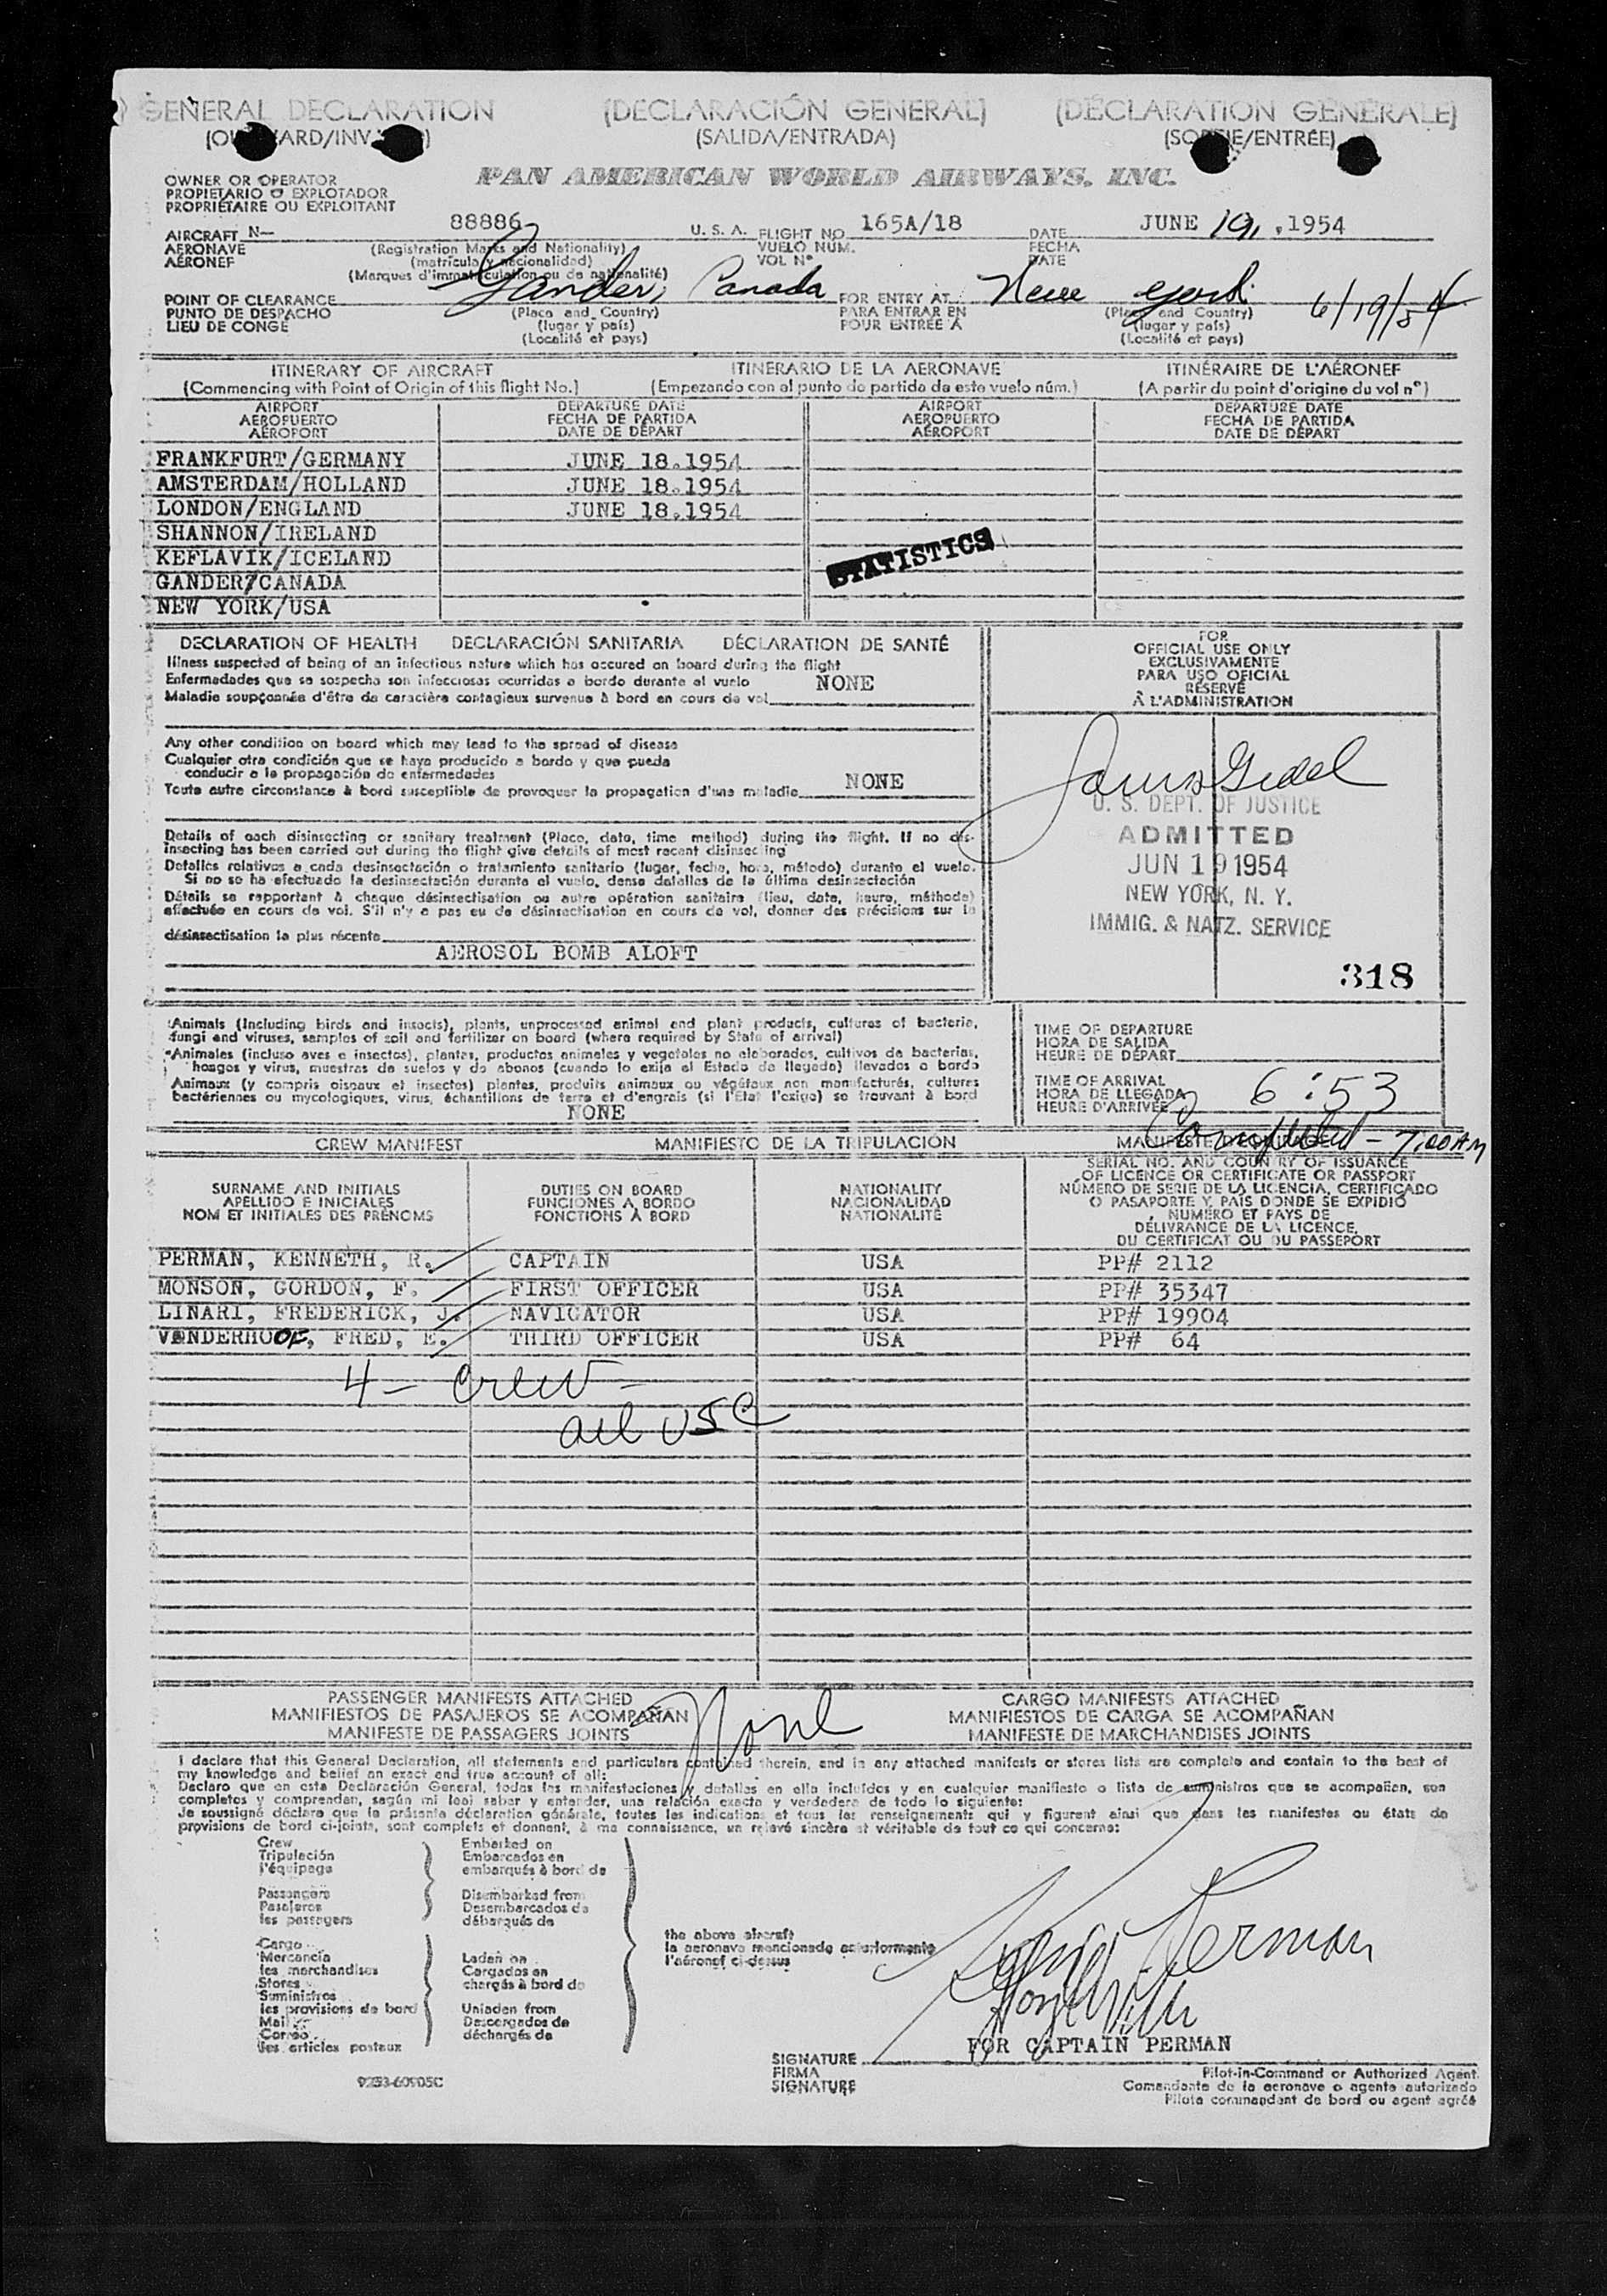 GENERAL DECLARATION (DECLARACIÓN GENERAL) (DÉCLARATION GÉNÉRALE)
(SALIDA/ENTRADA)
PAN AMERICAN WORLD AIRWAYS, INC.
OWNER OR OPERATOR
PROPIETARIO O EXPLOTADOR
PROPRIÉTAIRE OU EXPLOITANT
AIRCRAFT N— 88886 U. S. A. FLIGHT NO. 165A/18 DATE JUNE 19, ,1954
AERONAVE (Registration Marks and Nationality) VUELO NÚM. FECHA
AÉRONEF (matrícula y nacionalidad) VOL N° DATE
(Marques d'immatriculation ou de nationalité)
POINT OF CLEARANCE Gander, Canada FOR ENTRY AT New York 6/19/54
PUNTO DE DESPACHO (Place and Country) PARA ENTRAR EN (Place and Country)
LIEU DE CONGÉ (lugar y país) POUR ENTRÉE À (lugar y país)
(Localité et pays) (Localité et pays)
ITINERARY OF AIRCRAFT ITINERARIO DE LA AERONAVE ITINÉRAIRE DE L'AÉRONEF
(Commencing with Point of Origin of this flight No.) (Empezando con el punto de partida de este vuelo núm.) (A partir du point d'origine du vol n°)
AIRPORT DEPARTURE DATE AIRPORT DEPARTURE DATE
AEROPUERTO FECHA DE PARTIDA AEROPUERTO FECHA DE PARTIDA
AÉROPORT DATE DE DÉPART AÉROPORT DATE DE DÉPART
FRANKFURT/GERMANY JUNE 18.1954
AMSTERDAM/HOLLAND JUNE 18.1954
LONDON/ENGLAND JUNE 18.1954
SHANNON/IRELAND
KEFLAVIK/ICELAND
STATISTICS
GANDER/CANADA
NEW YORK/USA
DECLARATION OF HEALTH DECLARACIÓN SANITARIA DÉCLARATION DE SANTÉ
Illness suspected of being of an infectious nature which has occured on board during the flight
Enfermedades que se sospecha son infecciosas ocurridas a bordo durante el vuelo NONE
Maladie soupçonnée d'être de caractère contagieux survenue à bord en cours de vol
Any other condition on board which may lead to the spread of disease
Cualquier otra condición que se haya producido a bordo y que pueda
conducir a la propagación de enfermedades NONE
Toute autre circonstance à bord susceptible de provoquer la propagation d'une maladie
Details of each disinsecting or sanitary treatment (Place, date, time method) during the flight. If no dis-
insecting has been carried out during the flight give details of most recent disinsecting
Detalles relativos a cada desinsectación o tratamiento sanitario (lugar, fecha, hora, método) durante el vuelo.
Si no se ha efectuado la desinsectación durante el vuelo, dense detalles de la última desinsectación
Détails se rapportant à chaque désinsectisation ou autre opération sanitaire (lieu, date, heure, méthode)
effectuée en cours de vol. S'il n'y a pas eu de désinsectisation en cours de vol, donner des précisions sur la
désinsectisation la plus récente
AEROSOL BOMB ALOFT
FOR
OFFICIAL USE ONLY
EXCLUSIVAMENTE
PARA USO OFICIAL
RÉSERVÉ
À L'ADMINISTRATION
U. S. DEPT. OF JUSTICE
ADMITTED
JUN 19 1954
NEW YORK, N. Y.
IMMIG. & NATZ. SERVICE
318
Animals (Including birds and insects), plants, unprocessed animal and plant products, cultures of bacteria,
fungi and viruses, samples of soil and fertilizer on board (where required by State of arrival)
Animales (incluso aves e insectos), plantas, productos animales y vegetales no elaborados, cultivos de bacterias,
hongos y virus, muestras de suelos y de abonos (cuando lo exija el Estado de llegada) llevados a bordo
Animaux (y compris oiseaux et insectes) plantes, produits animaux ou végétaux non manufacturés, cultures
bactériennes ou mycologiques, virus, échantillons de terre et d'engrais (si l'État l'exige) se trouvant à bord
NONE
TIME OF DEPARTURE
HORA DE SALIDA
HEURE DE DÉPART
TIME OF ARRIVAL
HORA DE LLEGADA 6:53
HEURE D'ARRIVÉE
Completed - 7:00AM
CREW MANIFEST MANIFIESTO DE LA TRIPULACIÓN
SURNAME AND INITIALS
APELLIDO E INICIALES
NOM ET INITIALES DES PRÉNOMS
DUTIES ON BOARD
FUNCIONES A BORDO
FONCTIONS À BORD
NATIONALITY
NACIONALIDAD
NATIONALITÉ
SERIAL NO. AND COUNTRY OF ISSUANCE
OF LICENCE OR CERTIFICATE OR PASSPORT
NÚMERO DE SERIE DE LA LICENCIA, CERTIFICADO
O PASAPORTE Y PAÍS DONDE SE EXPIDIÓ
NUMÉRO ET PAYS DE
DÉLIVRANCE DE LA LICENCE,
DU CERTIFICAT OU DU PASSEPORT
PERMAN, KENNETH, R. CAPTAIN USA PP# 2112
MONSON, GORDON, F. FIRST OFFICER USA PP# 35347
LINARI, FREDERICK, J. NAVIGATOR USA PP# 19904
VANDERHOOF, FRED, E. THIRD OFFICER USA PP# 64
4 - crew -
all USC
PASSENGER MANIFESTS ATTACHED CARGO MANIFESTS ATTACHED
MANIFIESTOS DE PASAJEROS SE ACOMPAÑAN None MANIFIESTOS DE CARGA SE ACOMPAÑAN
MANIFESTE DE PASSAGERS JOINTS MANIFESTE DE MARCHANDISES JOINTS
I declare that this General Declaration, all statements and particulars contained therein, and in any attached manifests or stores lists are complete and contain to the best of
my knowledge and belief an exact and true account of all:
Declaro que en esta Declaración General, todas las manifestaciones y detalles en ella incluídos y en cualquier manifiesto o lista de suministros que se acompañen, son
completos y comprenden, según mi leal saber y entender, una relación exacta y verdadera de todo lo siguiente:
Je soussigné déclare que la présente déclaration générale, toutes les indications et tous les renseignements qui y figurent ainsi que dans les manifestes ou états de
provisions de bord ci-joints, sont complets et donnent, à ma connaissance, un relevé sincère et véritable de tout ce qui concerne:
Crew Embarked on
Tripulación Embarcados en
l'équipage embarqués à bord de
Passengers Disembarked from
Pasajeros Desembarcados de
les passagers débarqués de
Cargo
Mercancía Laden on
les marchandises Cargados en
Stores chargés à bord de
Suministros
les provisions de bord Unladen from
Mail Descargados de
Correo déchargés de
les articles postaux
the above aircraft
la aeronave mencionada anteriormente
l'aéronef ci-dessus
Perman
FOR CAPTAIN PERMAN
SIGNATURE
FIRMA
SIGNATURE
Pilot-in-Command or Authorized Agent
Comandante de la aeronave o agente autorizado
Pilote commandant de bord ou agent agréé
9233-60905C